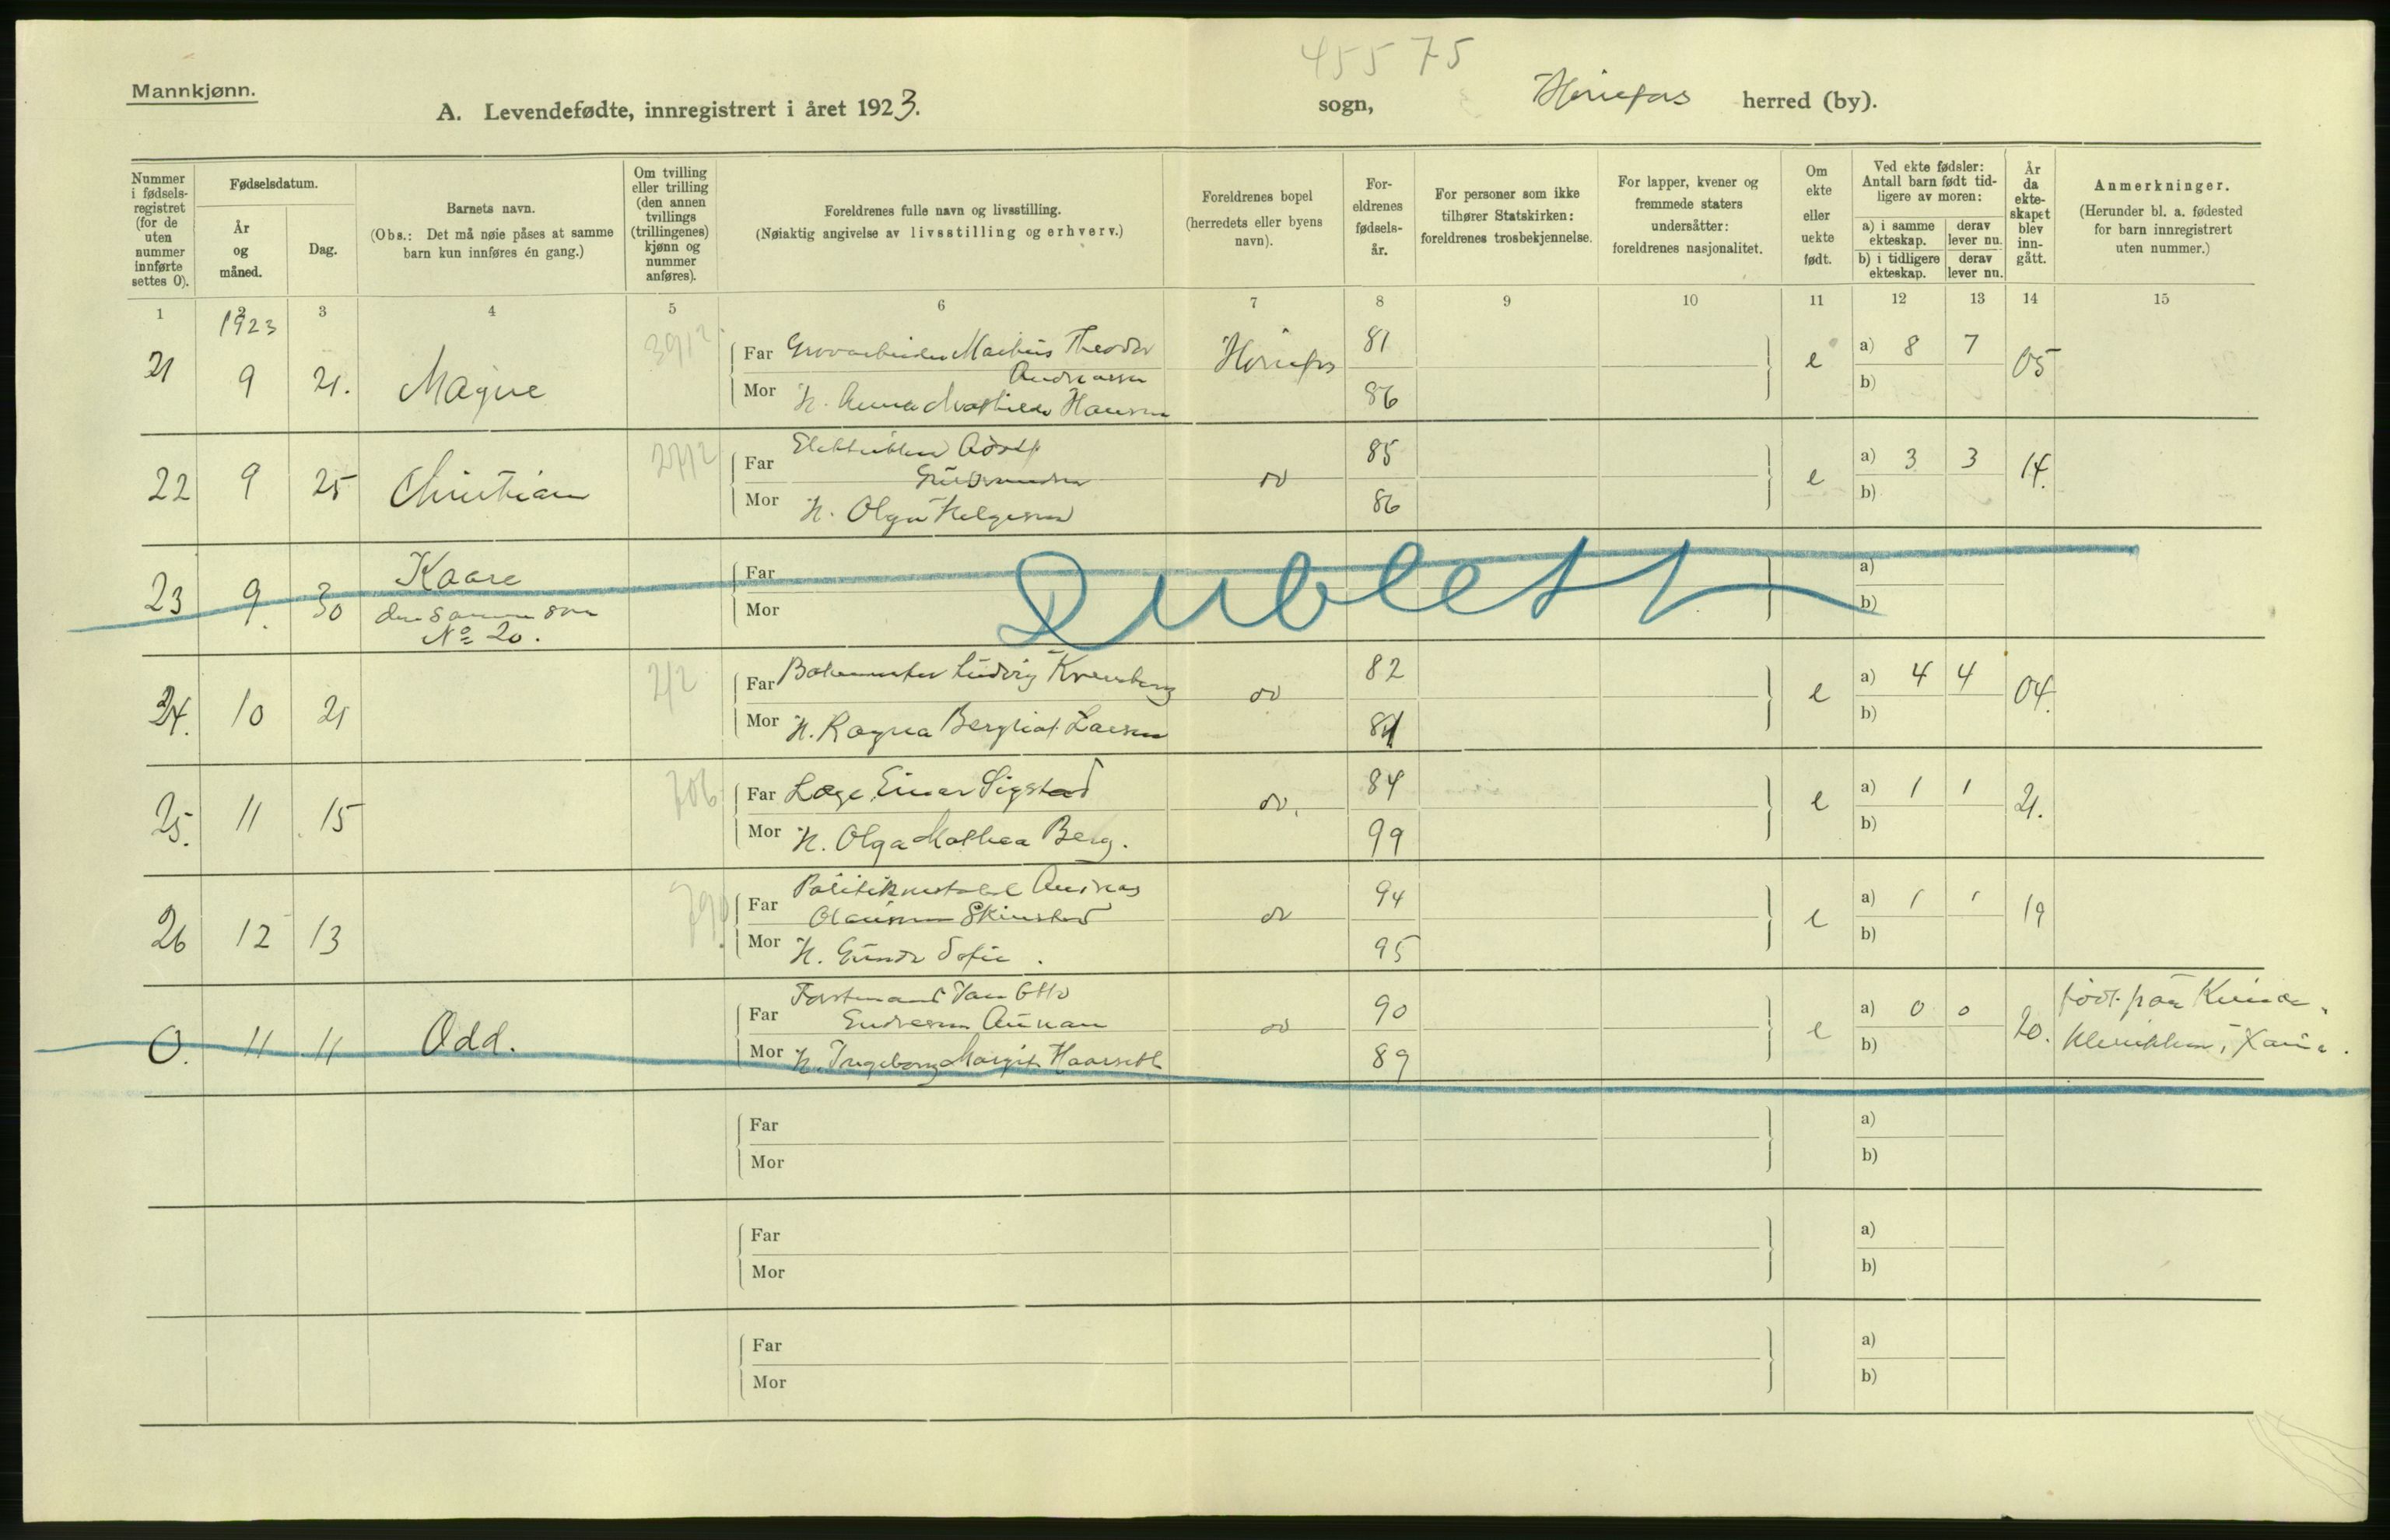 45575
Mannkjønn.
A. Levendefødte, innregistrert i året 1923.
sogn, Hønefos herred (by).
Nummer i fødsels-registret (for de uten nummer innførte settes 0).
Fødselsdatum.
År og måned.
Dag.
Barnets navn.
(Obs.: Det må nøie påses at samme barn kun innføres én gang.)
Om tvilling eller trilling (den annen tvillings (trillingenes) kjønn og nummer anføres).
Foreldrenes fulle navn og livsstilling.
(Nøiaktig angivelse av livsstilling og erhverv.)
Foreldrenes bopel (herredets eller byens navn).
For-eldrenes fødsels-år.
For personer som ikke tilhører Statskirken: foreldrenes trosbekjennelse.
For lapper, kvener og fremmede staters undersåtter: foreldrenes nasjonalitet.
Om ekte eller uekte født.
Ved ekte fødsler: Antall barn født tid-ligere av moren:
a) i samme ekteskap. derav lever nu.
b) i tidligere ekteskap. derav lever nu.
År da ekte-skapet blev inn-gått.
Anmerkninger.
(Herunder bl. a. fødested for barn innregistrert uten nummer.)
1 2 3 4 5 6 7 8 9 10 11 12 13 14 15
1923
21 9 21. Magne
Far Theodor Hønefos 81 e a) 8 7 05
Andreassen
Mor H. Anna Mathilde Hansen 86 b)
22 9 25 Christian
Far Adolf do 85 e a) 3 3 14.
Gudmundsen
Mor H. Olga Helgesen 86 b)
23 9. 30 Kaare
den samme som
No 20.
Far Dublett a)
Mor b)
24. 10 21 2/2
Far Ludvig do 82 e a) 4 4 04.
Mor H. Ragna Bergliot Larsen 84 b)
25. 11 15 706
Far Læge Einar Sigstad do. 84 e a) 1 1 21.
Mor H. Olga Mathea Berg. 99 b)
26 12 13
Far Politikonstabel Andreas do 94 e a) 1 1 19
Olausen Skinstad
Mor H. Gunda Sofie . 95 b)
0. 11 11 Odd.
Far Forstmand Jan Otto do 90 e a) 0 0 20. født paa
Endresen Aunan
Mor H. Ingeborg Margit Haarseth 89 b)
Far a)
Mor b)
Far a)
Mor b)
Far a)
Mor b)